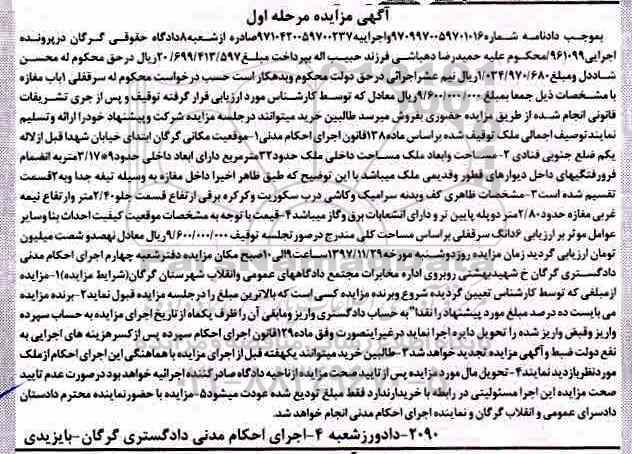 آگهی مزایده مرحله اول
بموجب دادنامه شماره ۹۷۰۹۹۷۰۰۵۹۷۰۱۰۱۶ واجراییه ۹۷۱۰۴۲۰۰۵۹۷۰۰۲۳۷ صادره ازشعبه ۸ دادگاه حقوقی گرگان درپرونده
اجرایی ۹۶۱۰۹۹/محکوم علیه حمیدرضا دهباشی فرزند حبیب اله بپرداخت مبلغ ۲۰/۶۹۹/۴۱۳/۵۹۷ ریال در حق محکوم له محسن
شاددل ومبلغ ۱/۰۳۴/۹۷۰/۶۸۰ ریال نیم عشراجرائی درحق دولت محکوم وبدهکار است حسب درخواست محکوم له سرقفلی ۱باب مغازه
با مشخصات ذیل جمعا بمبلغ ۹/۶۰۰/۰۰۰/۰۰۰ ریال معادل که توسط کارشناس مورد ارزیابی قرار گرفته توقیف و پس از جری تشریفات
قانونی انجام شده از طریق مزایده حضوری بفروش میرسد طالبین خرید میتوانند درجلسه مزایده شرکت وپیشنهاد خودرا ارائه و تسلیم
نمایند توصیف اجمالی ملک توقیف شده براساس ماده ۱۳۸ قانون اجرای احکام مدنی ۱-موقعیت مکانی گرگان ابتدای خیابان شهدا قبل ازلاله
یکم ضلع جنوبی قنادی ۲-مساحت وابعاد ملک مساحت داخلی ملک حدود ۳۲ مترمربع دارای ابعاد داخلی حدود ۹*۳/۱۷ متربه انضمام
فرورفتگیهای داخل دیوارهای قطور وقدیمی ملک میباشد با این توضیح که طبق ظاهر اخیرا داخل مغازه به وسیله تیغه جدا وبه ۲ قسمت
تقسیم شده است ۳-مشخصات ظاهری کف وبدنه سرامیک وکاشی درب سکوریت وکرکره برقی ارتفاع قسمت جلو ۲/۴۰ متر وارتفاع نیمه
غربی مغازه حدود ۲/۸۰ متر دوپله پایین تر و دارای انشعابات برق وگاز میباشد ۴-قیمت با توجه به مشخصات موقعیت کیفیت احداث بنا وسایر
عوامل موثر بر ارزیابی ۶ دانگ سرقفلی براساس مساحت کلی مندرج درصورتجلسه توقیف ۹/۶۰۰/۰۰۰/۰۰۰ ریال معادل نهصدو شصت میلیون
تومان ارزیابی گردید زمان مزایده روزدوشنبه مورخه ۱۳۹۷/۱۱/۲۹ ساعت ۹ الی ۱۰ صبح مکان مزایده دفترشعبه چهارم اجرای احکام مدنی
دادگستری گرگان خ شهیدبهشتی روبروی اداره مخابرات مجتمع دادگاههای عمومی وانقلاب شهرستان گرگان(شرایط مزایده) ۱-مزایده
ازمبلغی که توسط کارشناس تعیین گردیده شروع وبرنده مزایده کسی است که بالاترین مبلغ را درجلسه مزایده قبول نماید ۲-برنده مزایده
می بایست ده درصد مبلغ مورد پیشنهاد را نقداً به حساب دادگستری واریز ومابقی آن را ظرف یکماه از تاریخ اجرای مزایده به حساب سپرده
واریز وقبض واریز شده را تحویل دایره اجرا نماید درغیراینصورت وفق ماده ۱۲۹ قانون اجرای احکام سپرده پس ازکسرهزینه های اجرایی به
نفع دولت ضبط و آگهی مزایده تجدید خواهد شد ۳-طالبین خرید میتوانند یکهفته قبل از اجرای مزایده با هماهنگی این اجرای احکام ازملک
موردنظربازدید نمایند ۴-تحویل مال مورد مزایده پس از تایید صحت مزایده ازناحیه دادگاه صادرکننده اجرائیه خواهد بود درصورت عدم تایید
صحت مزایده این اجرا مسئولیتی در رابطه با خریدارندارد فقط مبلغ تودیع شده عودت میشود ۵-مزایده با حضورنماینده محترم دادستان
دادسرای عمومی و انقلاب گرگان و نماینده اجرای احکام مدنی انجام خواهد شد.
۲۰۹۰-دادورزشعبه ۴-اجرای احکام مدنی دادگستری گرگان-بایزیدی